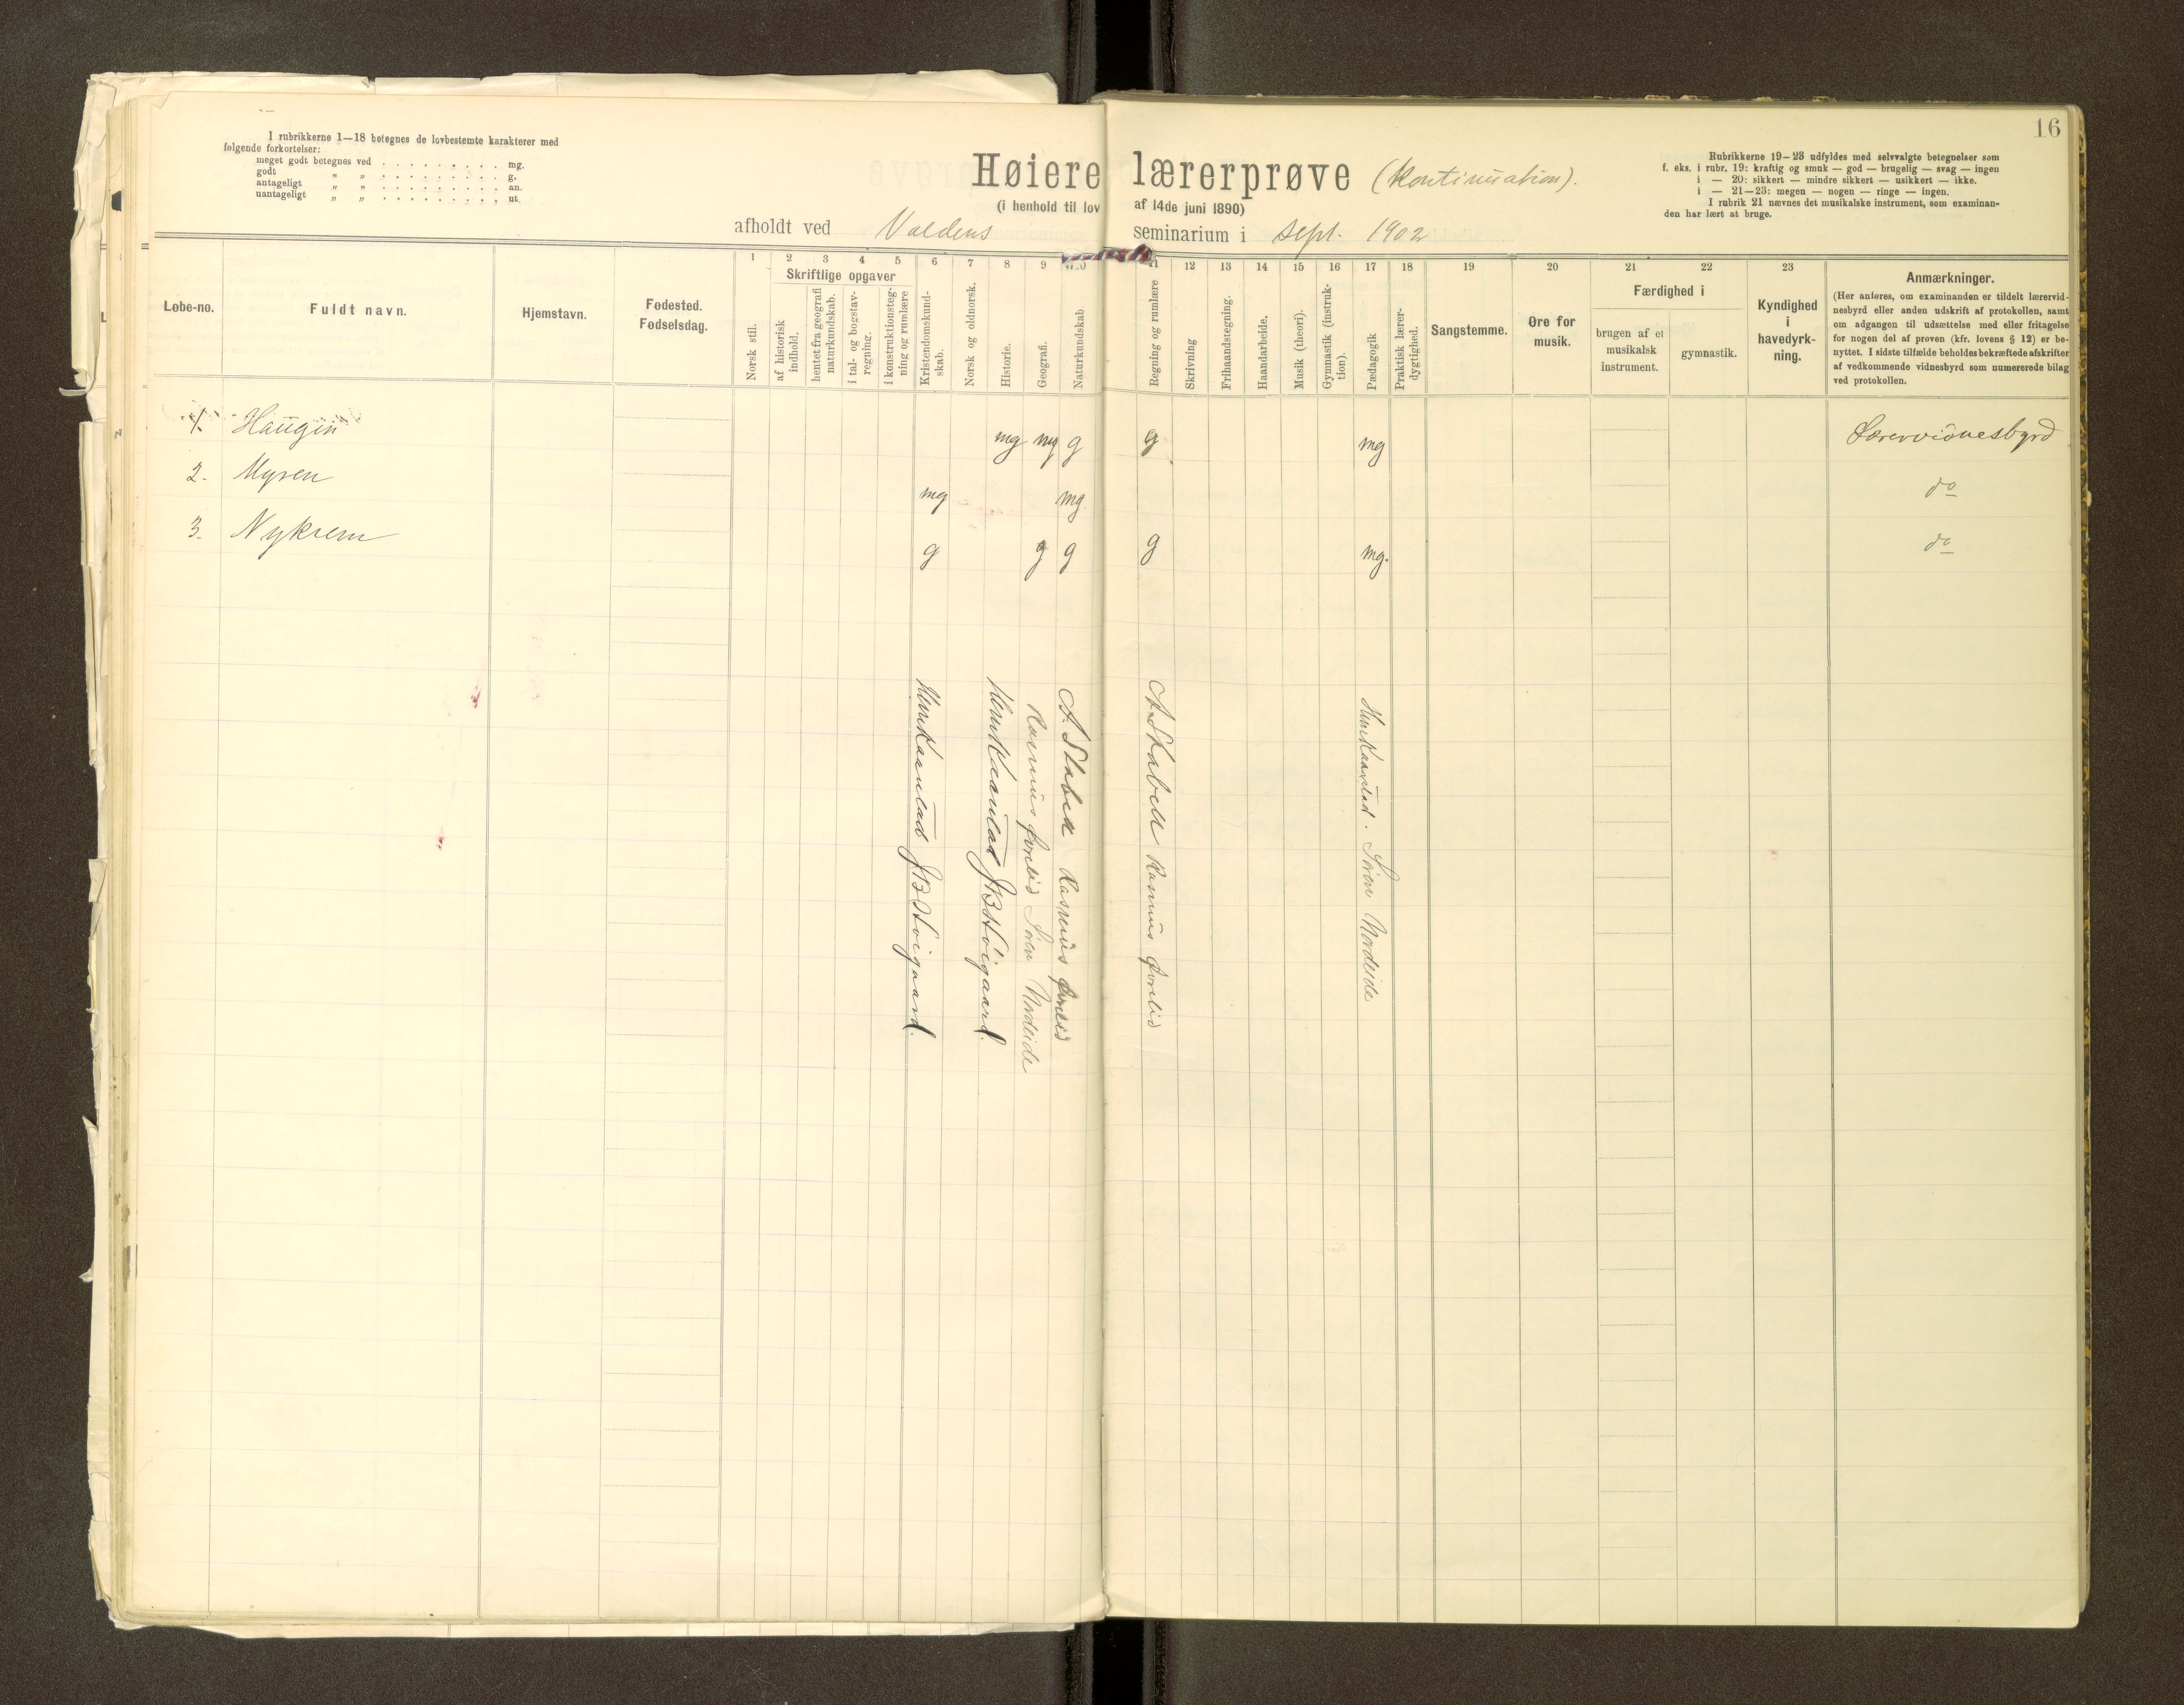 16
I rubrikkerne 1—18 betegnes de lovbestemte karakterer med
følgende forkortelser:
meget godt betegnes ved . . . . . . . . . mg.
godt „ „ . . . . . . . . . g.
antageligt „ „ . . . . . . . . . an.
uantageligt „ „ . . . . . . . . . ut.
Høiere lærerprøve (kontinuation).
(i henhold til lov af 14de juni 1890)
afholdt ved Voldens seminarium i sept. 1902
Rubrikkerne 19—23 udfyldes med selvvalgte betegnelser som
f. eks. i rubr. 19: kraftig og smuk — god — brugelig — svag — ingen
i — 20: sikkert — mindre sikkert — usikkert — ikke.
i — 21—23: megen — nogen — ringe — ingen.
I rubrik 21 nævnes det musikalske instrument, som examinan-
den har lært at bruge.
1 2 3 4 5 6 7 8 9 10 11 12 13 14 15 16 17 18 19 20 21 22 23
Løbe-no.
Fuldt navn.
Hjemstavn.
Fødested.
Fødselsdag.
Norsk stil.
Skriftlige opgaver
af historisk
indhold.
hentet fra geografi
naturkundskab.
i tal- og bogstav-
regning.
i konstruktionsteg-
ning og rumlære
Kristendomskund-
skab.
Norsk og oldnorsk.
Historie.
Geografi.
Naturkundskab
Regning og rumlære
Skrivning
Frihaandstegning.
Haandarbeide.
Musik (theori).
Gymnastik (instruk-
tion).
Pædagogik
Praktisk lærer-
dygtighed.
Sangstemme.
Øre for
musik.
Færdighed i
brugen af et
musikalsk
instrument.
gymnastik.
Kyndighed
i
havedyrk-
ning.
Anmærkninger.
(Her anføres, om examinanden er tildelt lærervid-
nesbyrd eller anden udskrift af protokollen, samt
om adgangen til udsættelse med eller fritagelse
for nogen del af prøven (kfr. lovens § 12) er be-
nyttet. I sidste tilfælde beholdes bekræftede afskrifter
af vedkommende vidnesbyrd som numererede bilag
ved protokollen.
1. Haugen mg mg g g mg Lærervidnesbyrd
2. Myren mg mg do
3. Nykrem g g g g mg. do
Henr Kaarstad J B Høigaard.
Henr Kaarstad J B Høigaard.
Rasmus Øvrelid Søren Nordeide
A. Stabell Rasmus Øvrelid
A. Stabell Rasmus Øvrelid
Henr Kaarstad. Søren Nordeide